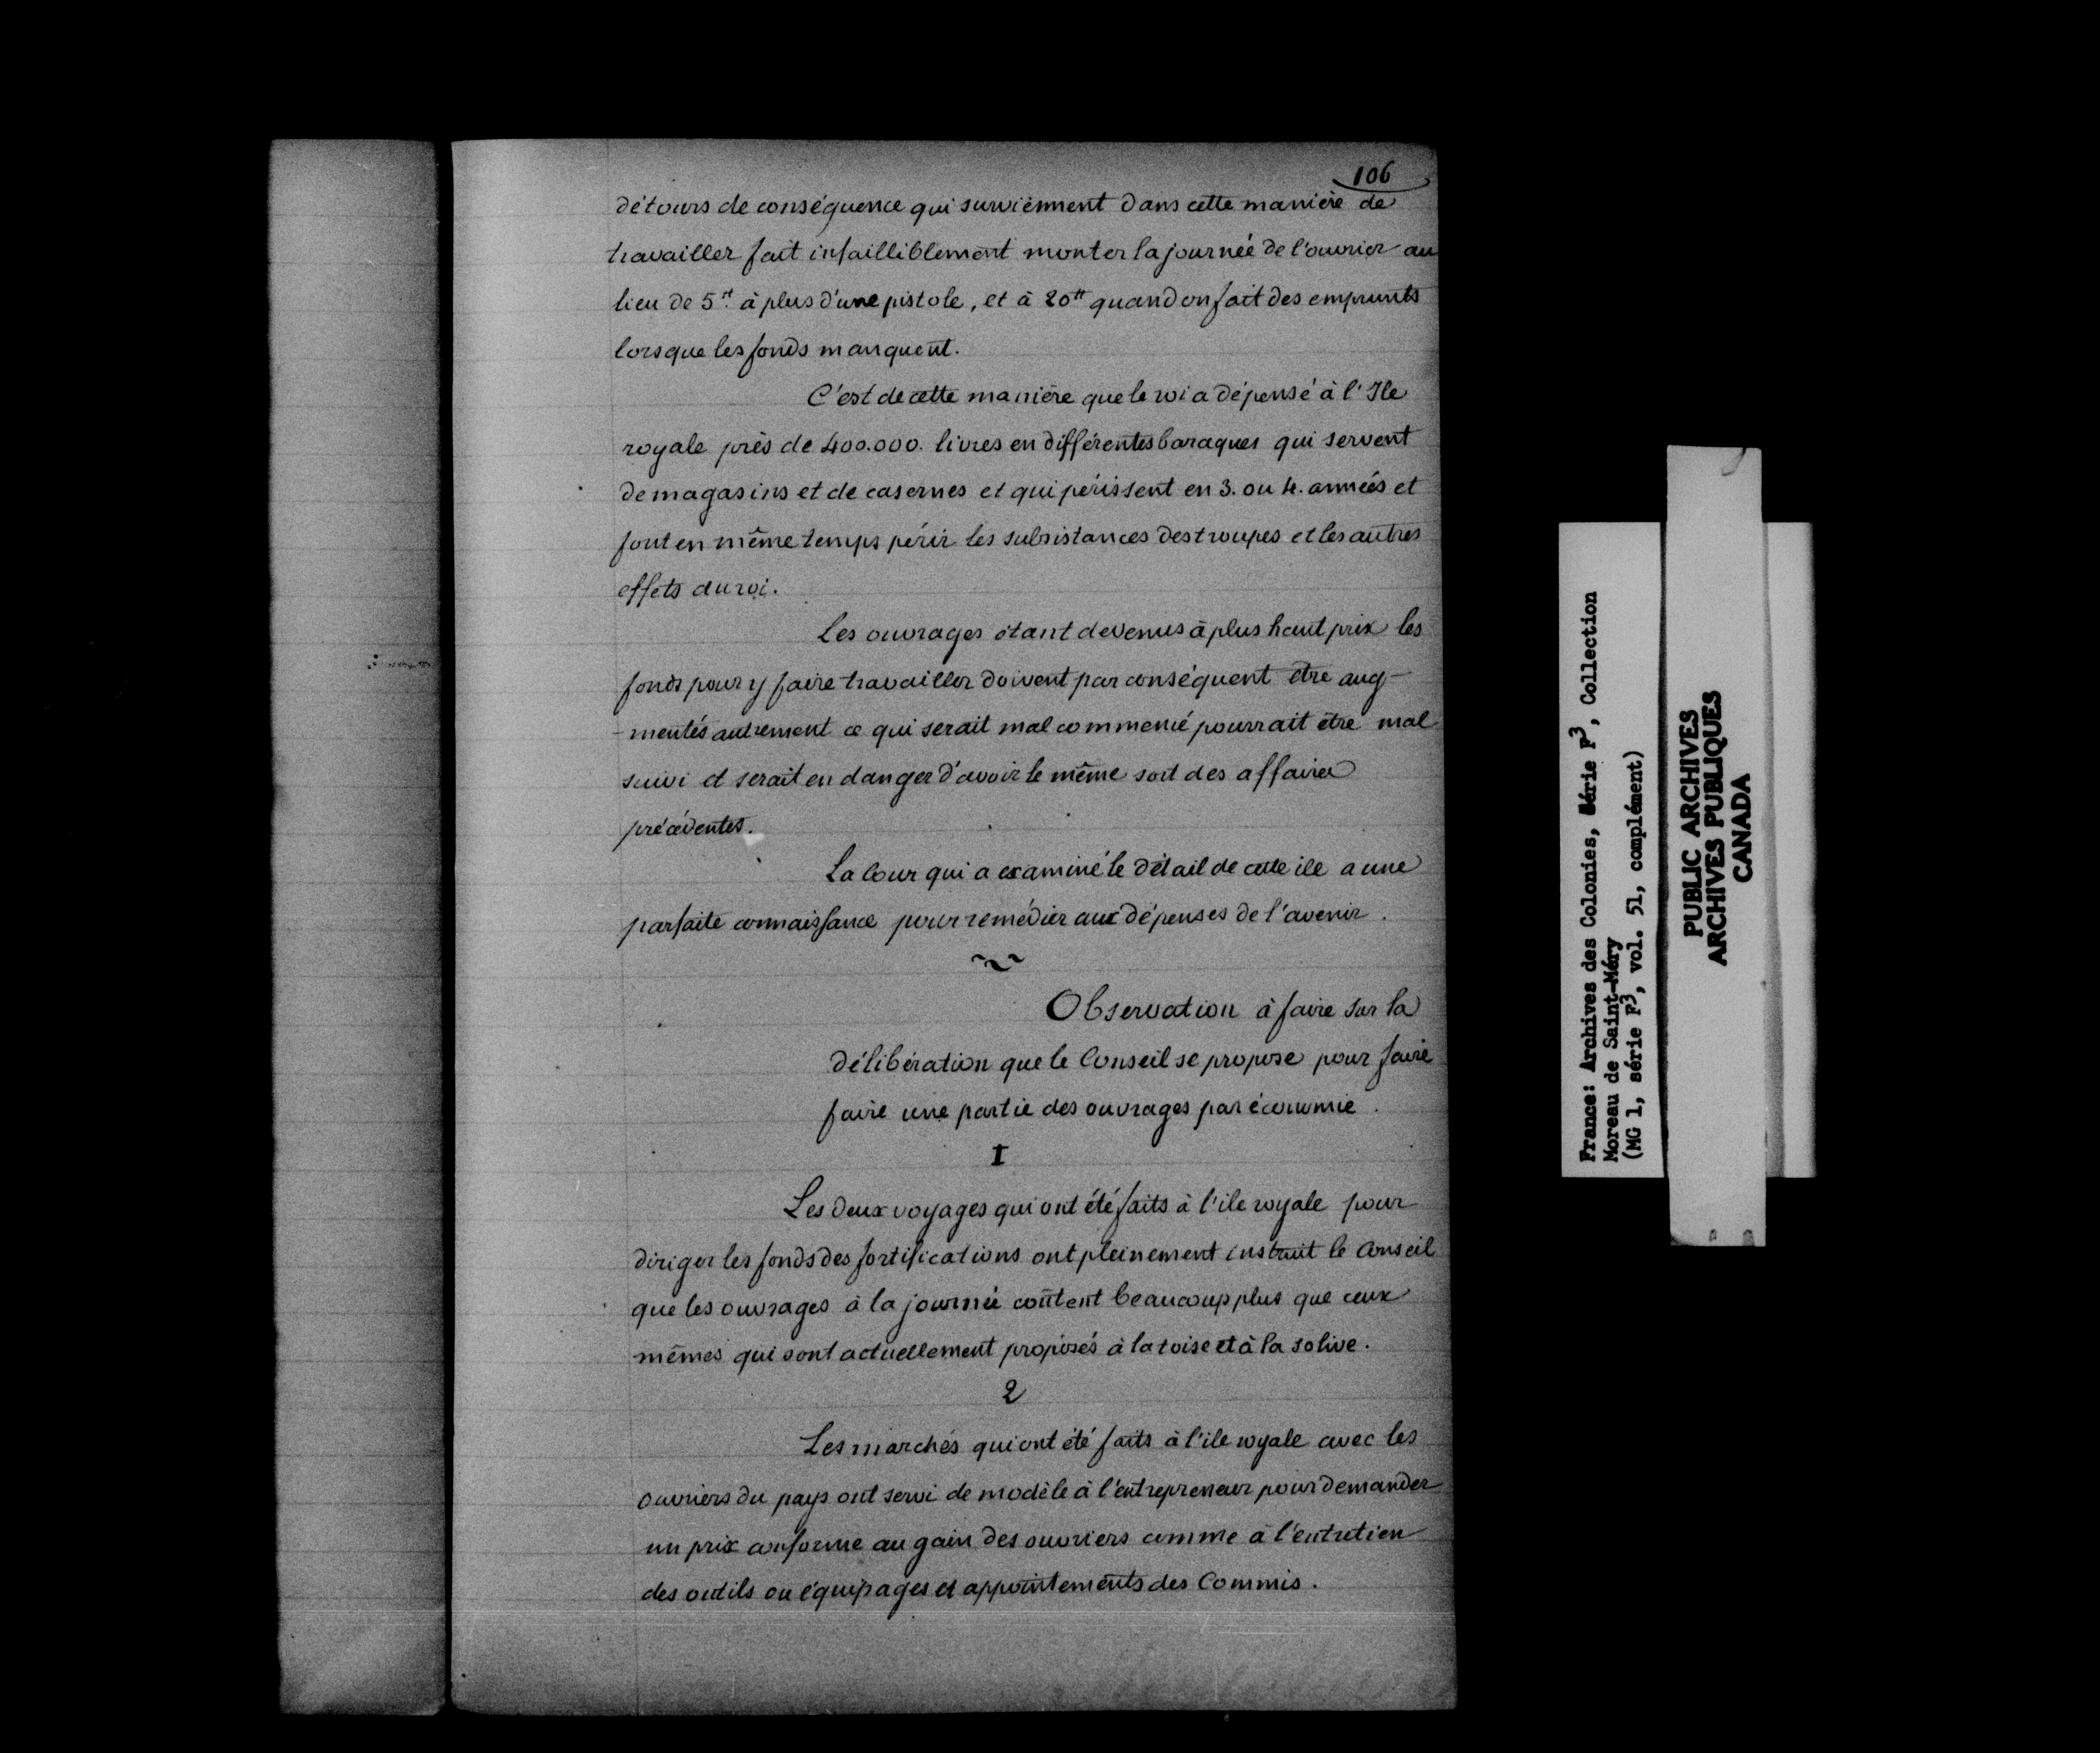 106
détours de conséquence qui surviennent dans cette manière de
travailler fait infailliblement monter la journée de l'ouvrier au
lieu de 5# à plus d'une pistole, et à 20# quand on fait des emprunts
lorsque les fonds manquent.
C'est de cette manière que le roi a dépensé à l'Ile
royale près de 400.000. livres en différentes baraques qui servent
de magasins et de casernes et qui périssent en 3. ou 4. années et
font en même temps périr les subsistances des troupes et les autres
effets du roi.
Les ouvrages étant devenus à plus haut prix les
fonds pour y faire travailler doivent par conséquent être aug-
-mentés autrement ce qui serait mal commencé pourrait être mal
suivi et serait en danger d'avoir le même sort des affaires
précédentes.
La Cour qui a examiné le détail de cette ile a une
parfaite connaissance pour remédier aux dépenses de l'avenir.
Observation à faire sur la
délibération que le Conseil se propose pour faire
faire une partie des ouvrages par économie.
I
Les deux voyages qui ont été faits à l'ile royale pour
diriger les fonds des fortifications ont pleinement instruit le Conseil
que les ouvrages à la journée coûtent beaucoup plus que ceux
mêmes qui sont actuellement proposés à la toise et à la solive.
2
Les marchés qui ont été faits à l'ile royale avec les
ouvriers du pays ont servi de modèle à l'entrepreneur pour demander
un prix conforme au gain des ouvriers comme à l'entretien
des outils ou équipages et appointements des Commis.
France: Archives des Colonies, Série F3, Collection
Moreau de Saint-Méry
(MG 1, série F3, vol. 51, complément)
PUBLIC ARCHIVES
ARCHIVES PUBLIQUES
CANADA